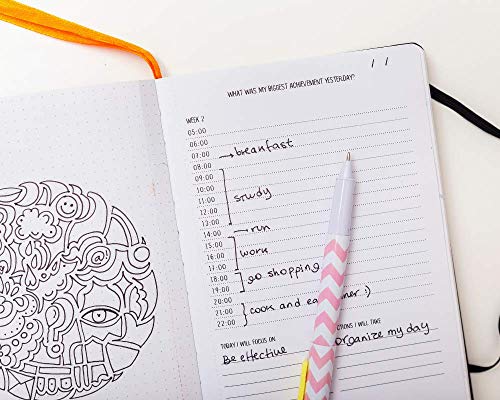 / /
WHAT WAS MY BIGGEST ACHIEVEMENT YESTERDAY?
WEEK 2
05:00
06:00
07:00 → breakfast
08:00
09:00
10:00
11:00 study
12:00
13:00
14:00 → run
15:00
16:00 work
17:00
18:00 go shopping
19:00
20:00
21:00 cook and :)
22:00
TODAY I WILL FOCUS ON
Be effective
I WILL TAKE
organize my day